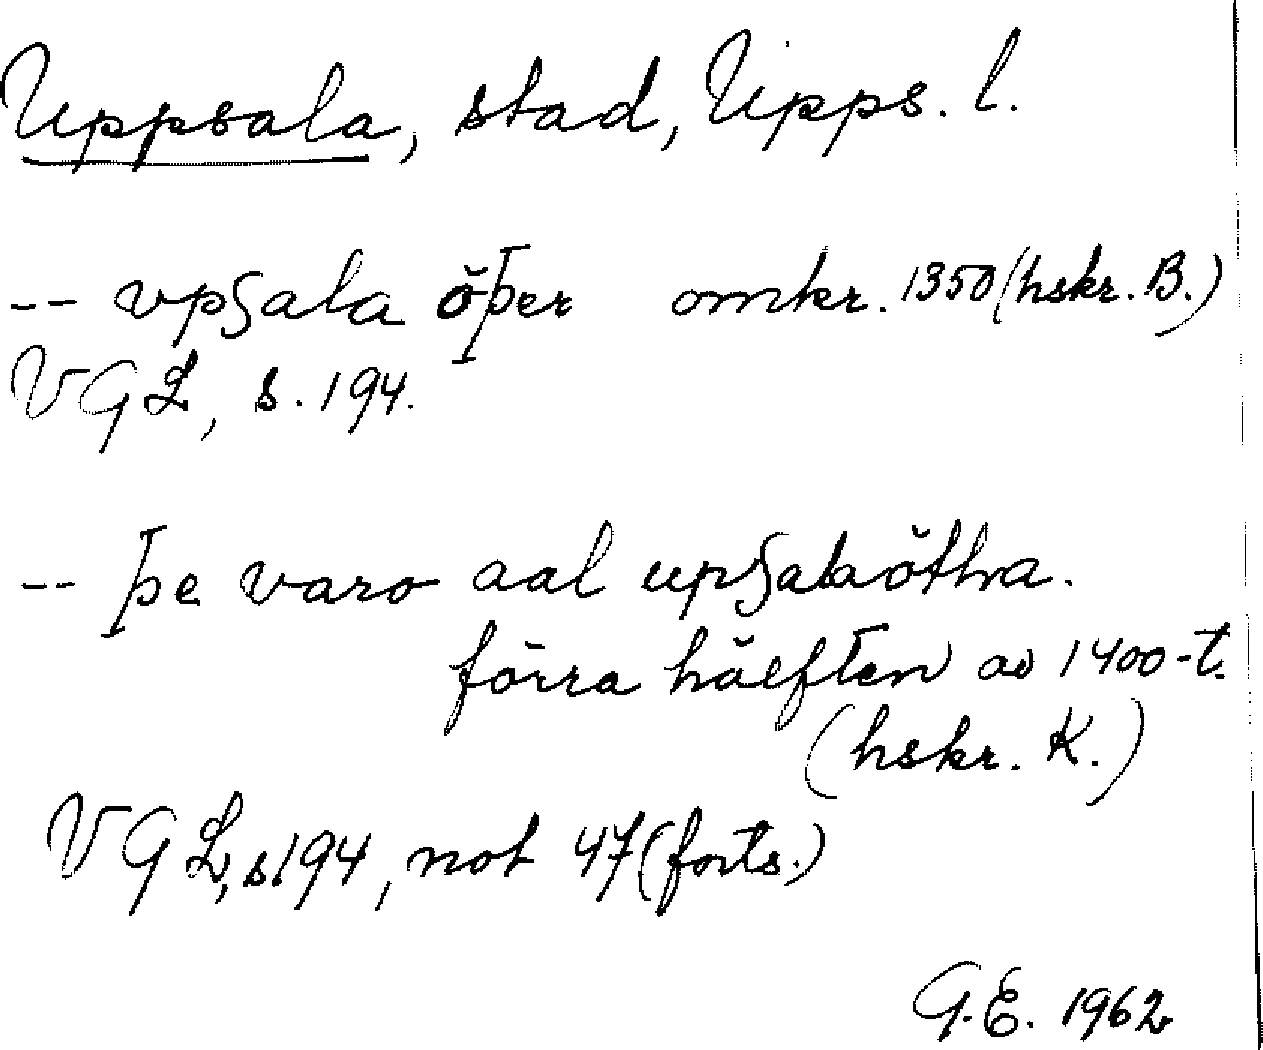 Uppsala, stad, Upps. l.
-- vpsala öþer omkr. 1350 (hskr. B.)
VGL, s. 194.
-- þe varo aal upsalaöthra.
förra hälften av 1400-t.
(hskr. K.)
VGL, s. 194, not 47 (forts.)
G.E. 1962